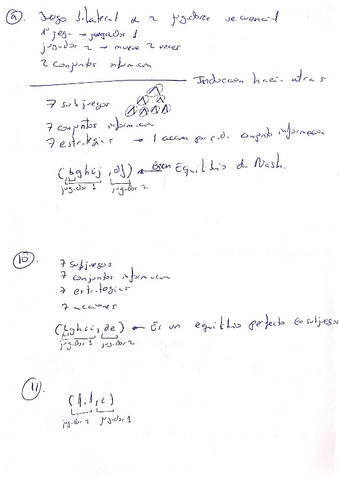 9. Juego bilateral de 2 jugadores secuencial
1º juega → jugador 1
jugador 2 → mueve 2 veces
2 conjuntos informacion
Induccion hacia atras
7 subjuegos
7 conjuntos informacion
7 estrategias → 1 accion por c.d. conjunto informacion
(bghcj, df) ← Equilibrio de Nash.
jugador 1 jugador 2
10.
7 subjuegos
7 conjuntos informacion
7 estrategias
7 acciones
(bghci, de) ← Es un equilibrio perfecto en subjuegos
jugador 1 jugador 2
11.
jugador 2 jugador 1